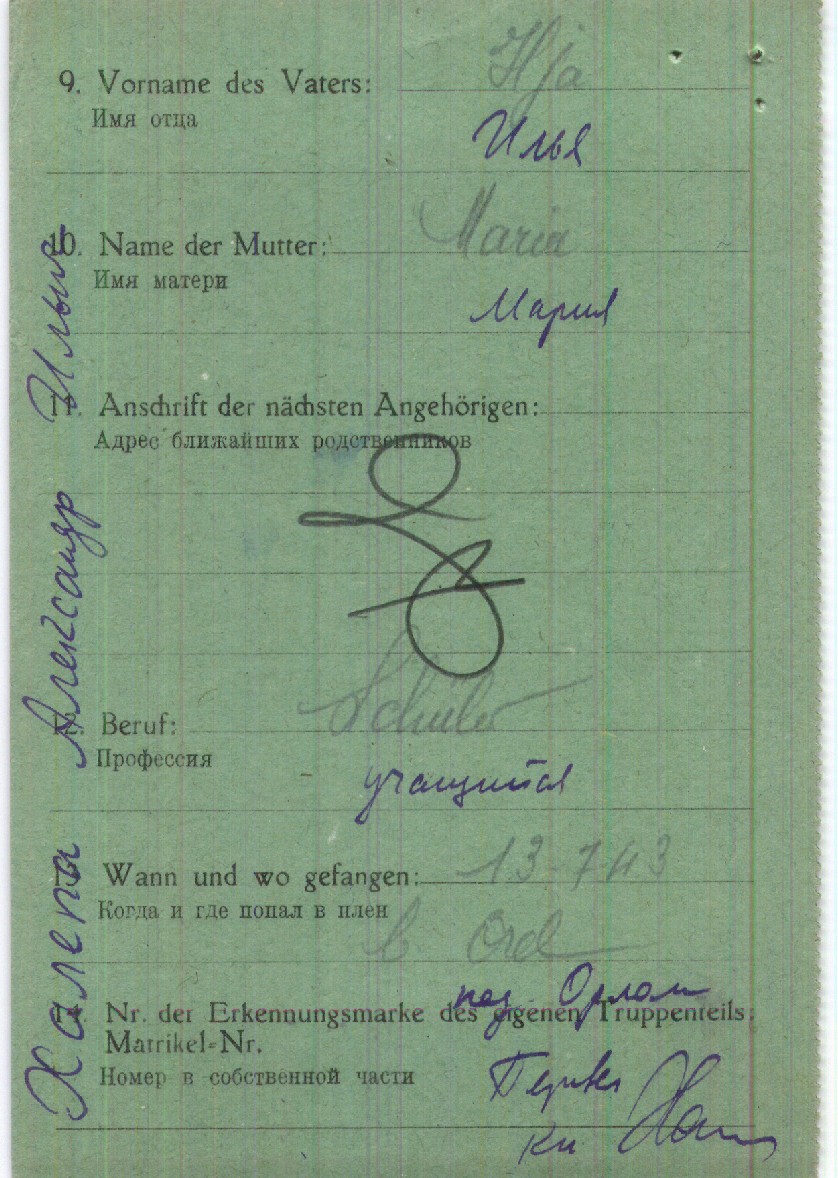 9. Vorname des Vaters: Ilja
Имя отца
Илья
10. Name der Mutter: Maria
Имя матери
Мария
11. Anschrift der nächsten Angehörigen:
Адрес ближайших родственников
12. Beruf: Schüler
Профессия
учащийся
13. Wann und wo gefangen: 13-7-43
Когда и где попал в плен
b Orel
под Орлом
14. Nr. der Erkennungsmarke des eigenen Truppenteils:
Matrikel-Nr.
Номер в собственной части
Халепа Александр Ильич